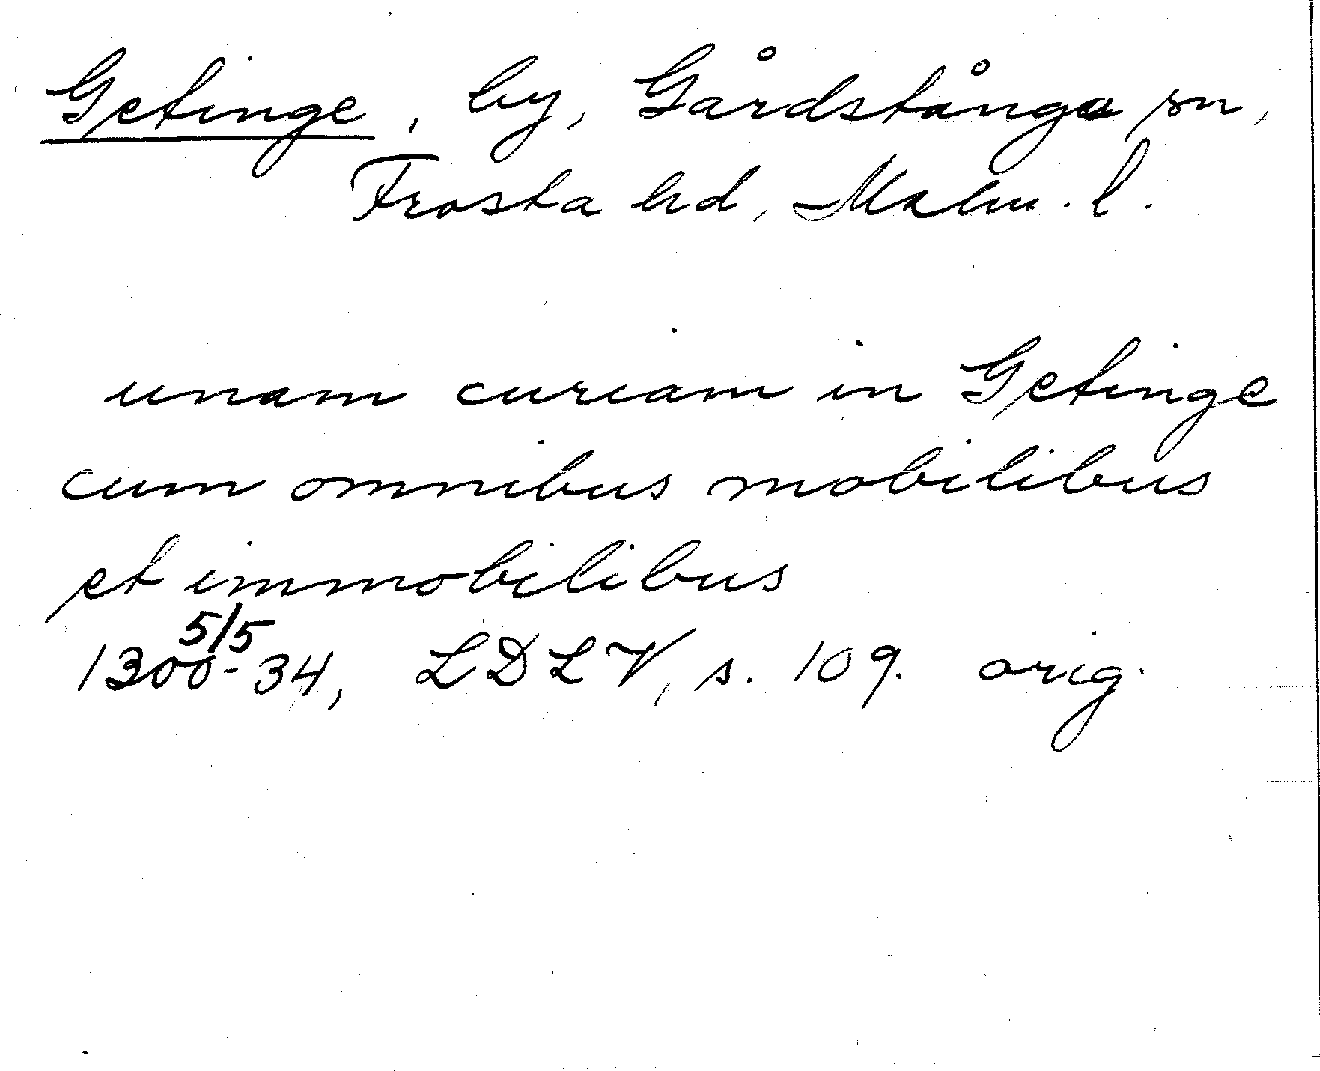 Getinge, by, Gårdstånga sn,
Frosta hd, Malm. l.
unam curiam in Getinge
cum omnibus mobilibus
et immobilibus
1300 5/5 - 34, LDLV, s. 109. orig.